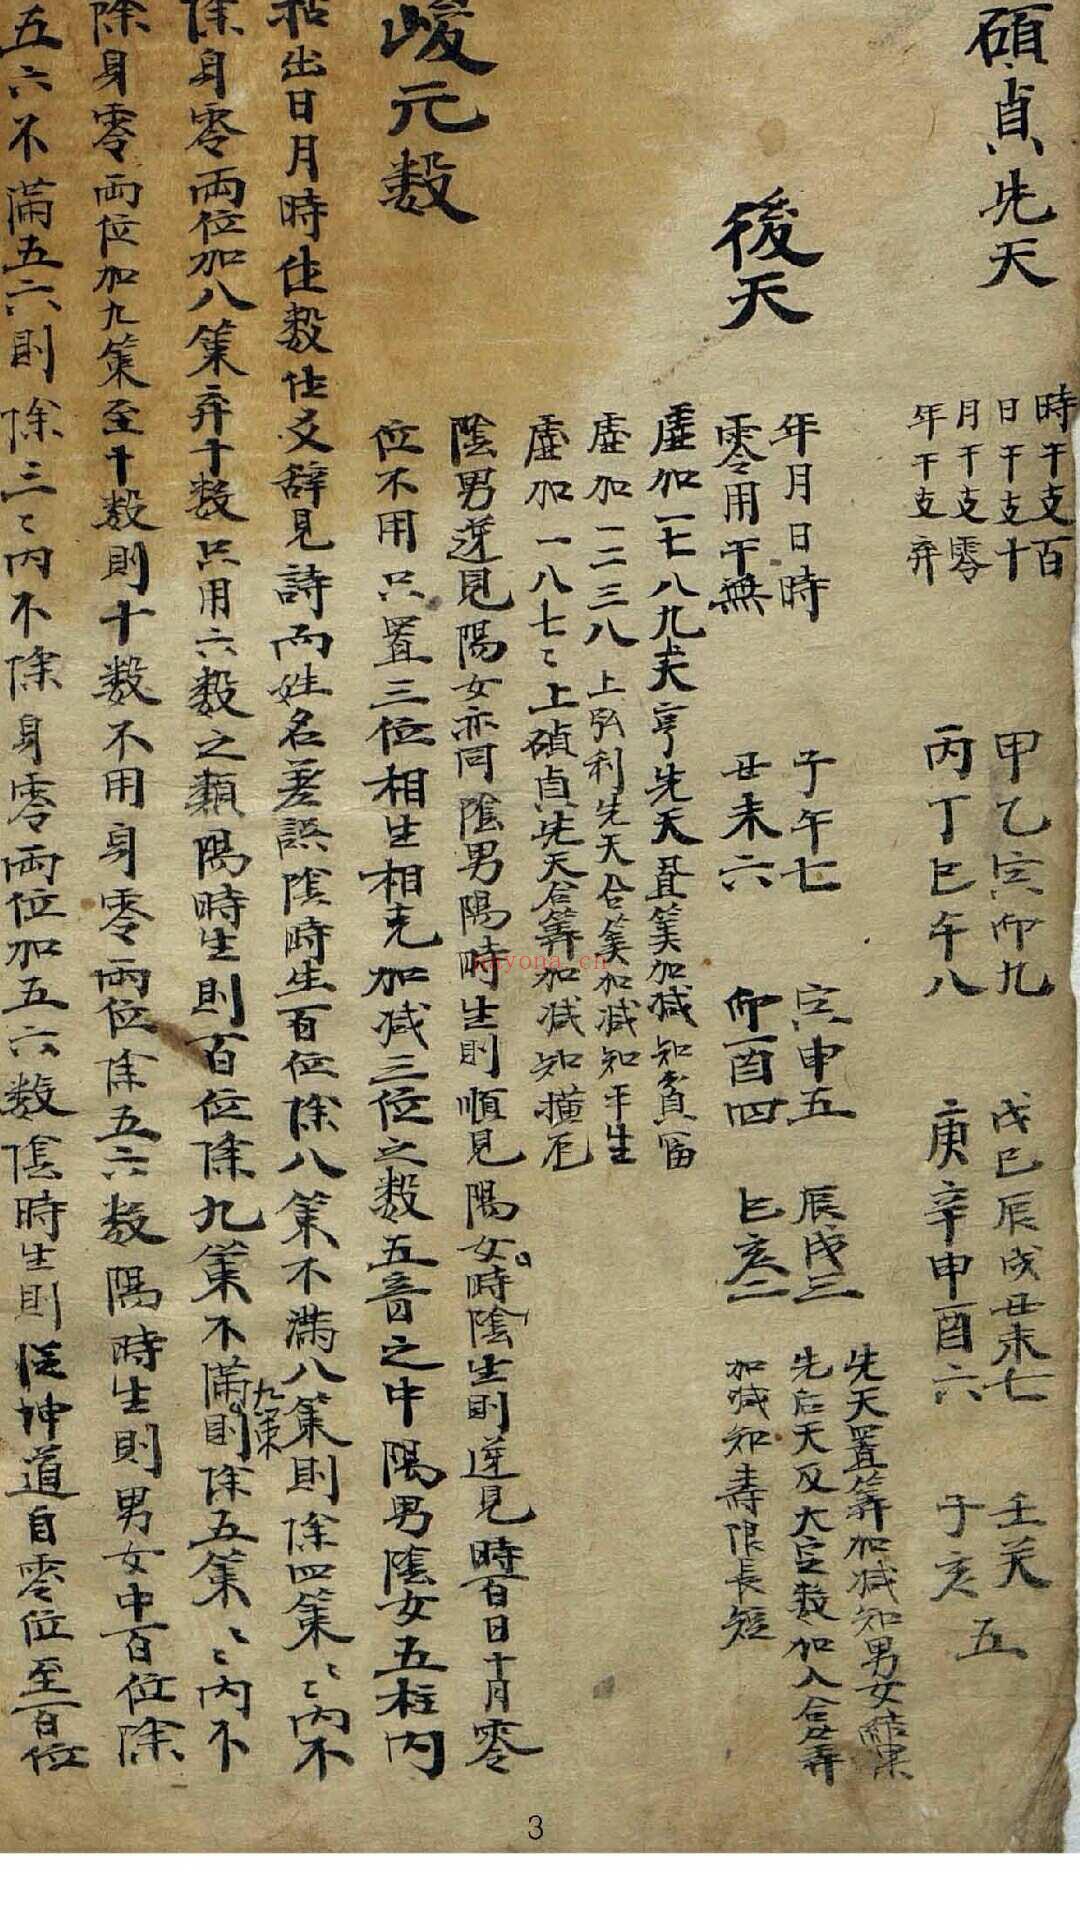 碩貞先天
時干支百
日干支十
月干支零
年干支弃
甲乙寅卯九
丙丁巳午八
戊己辰戌丑未七
庚辛申酉六
壬癸
子亥
五
先天置筭加减知男女結果
後天
年月日時
零用干無
子午七
丑未六
寅申五
卯酉四
辰戌三
巳亥二
先后天及大定数加入合筭
加减知壽限長短
虛加一七八九末亨先天置筭加减知貧富
虛加一二三八上弘利先天合筭加减知平生
虛加一八七〻上碩貞先天合筭加减知橫厄
陰男逆見陽女亦同陰男陽時生則順見陽女時陰生則逆見時百日十月零
位不用只置三位相生相克加减三位之数五音之中陽男陰女五柱内
峻元数
拈出日月時住数仕爻辞見詩而姓名差誤陰時生百位除八策不滿八策則除四策〻〻内不
除身零兩位加八策弃十数只用六数之類陽時生則百位除九策不滿九策則除五策〻〻内不
除身零兩位加九策至千数則十数不用身零兩位除五六数陽時生則男女中百位除
五六不滿五六則除三〻内不除身零兩位加五六数陰時生則從坤道自零位至百位
kayona.cn
3